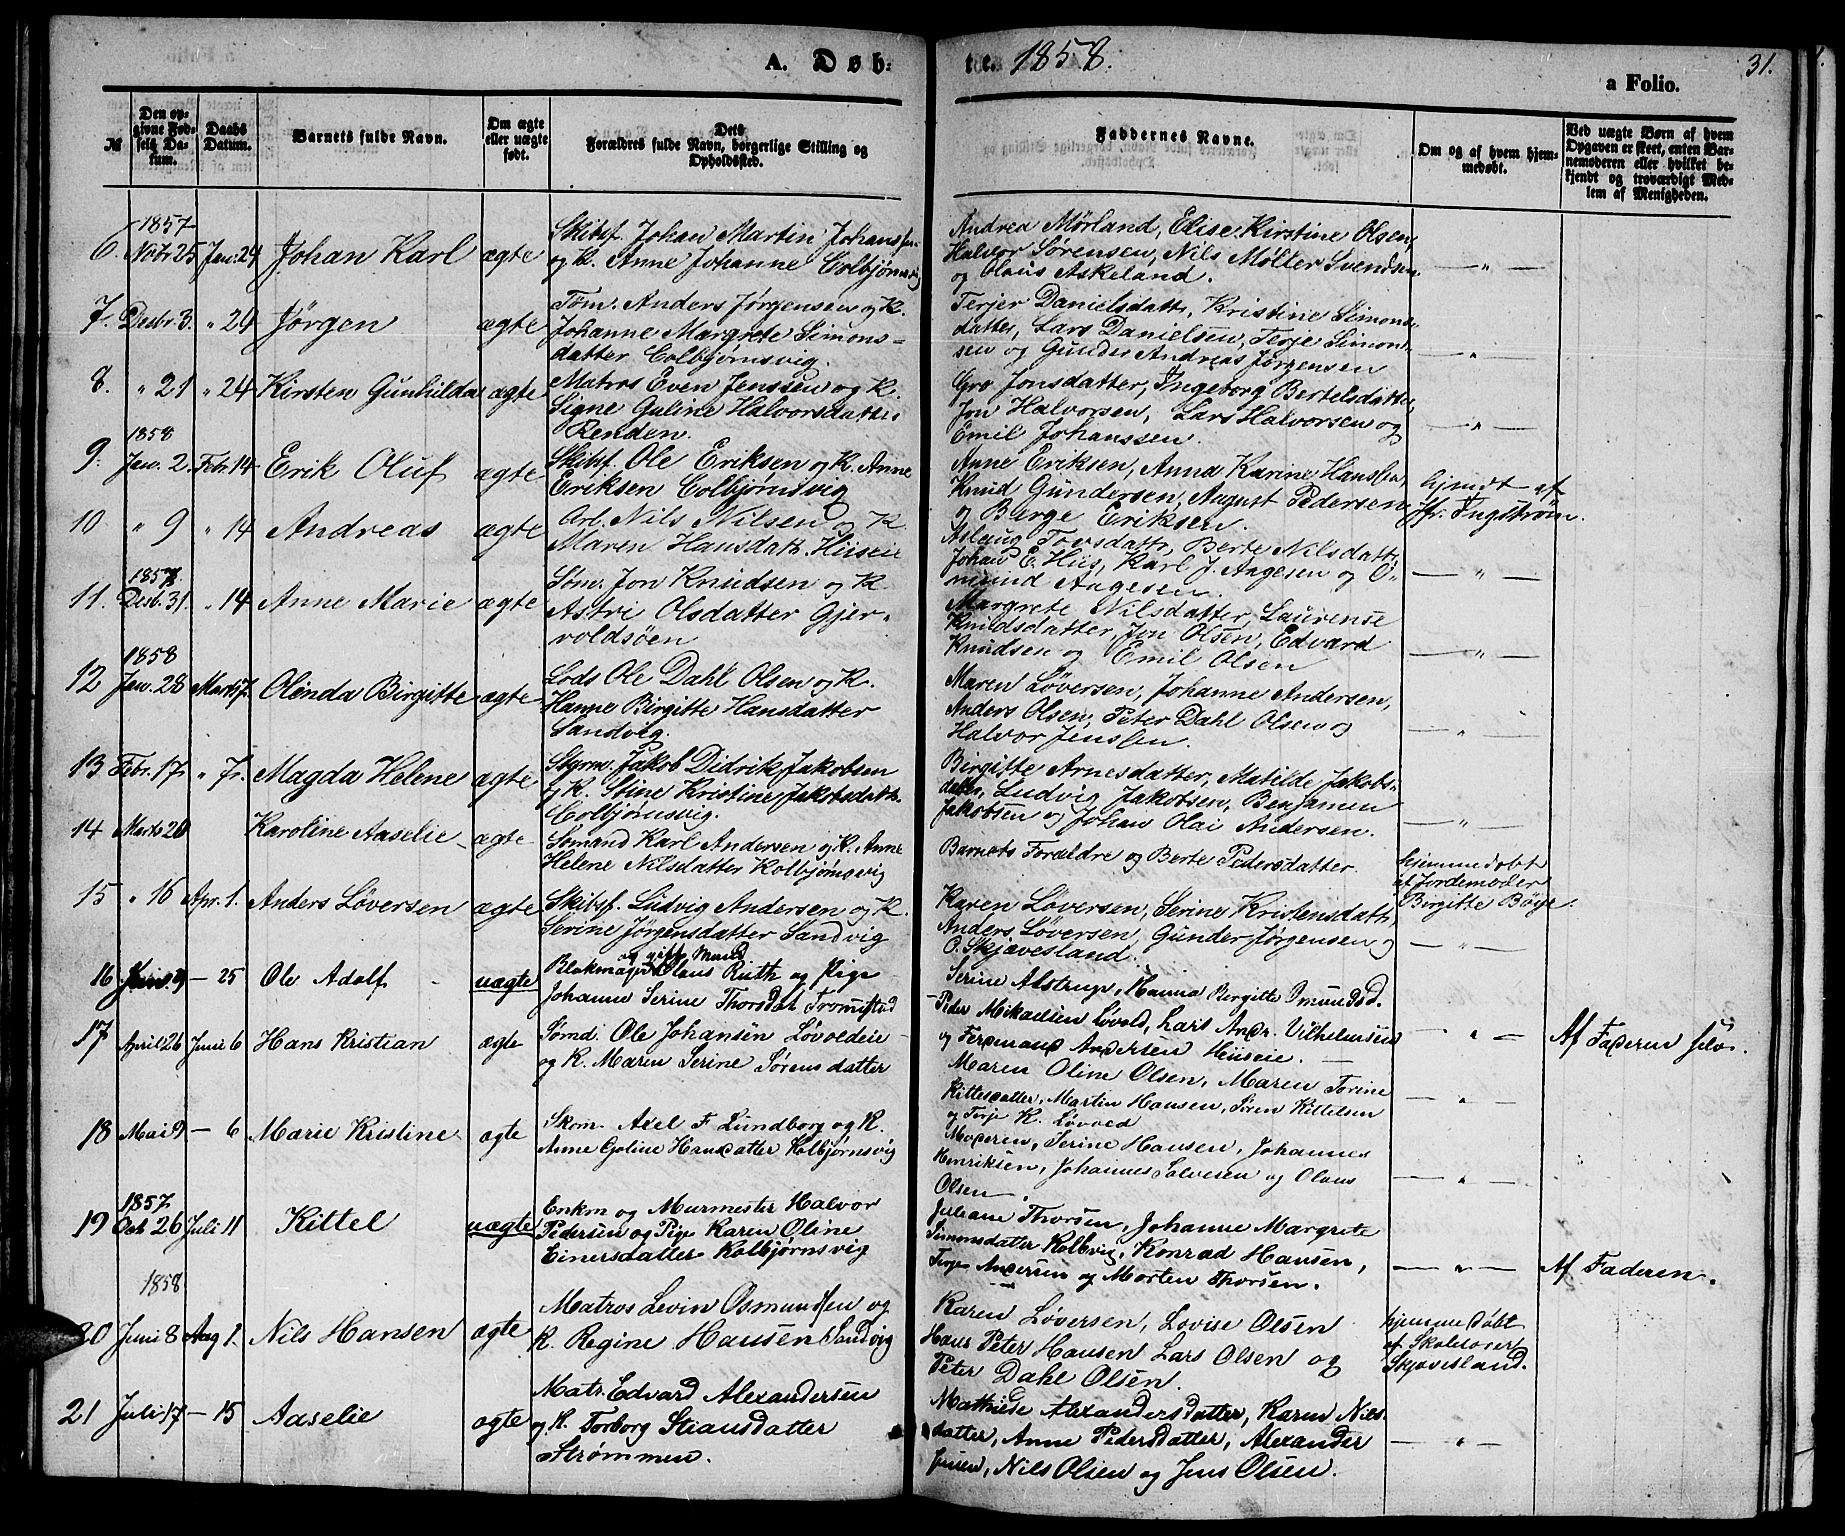 A. Døb-
te. 1858.
31.
a Folio.
№
Den op-
givne Fød-
sels Da-
tum.
Daabs
Datum.
Barnets fulde Navn.
Om ægte
eller uægte
født.
Dets
Forældres fulde Navn, borgerlige Stilling og
Opholdssted.
Faddernes Navne.
Om og af hvem hjem-
medøbt.
Ved uægte Børn af hvem
Opgaven er skeet, enten Bar-
nemoderen eller hvilket be-
kjendt og troværdigt Med-
lem af Menigheden.
1857
6. Nobr 25 Jan. 24 Johan Karl ægte
Skibsf. Johan Martin Johanssen
og K. Anne Johanne Colbjørnsvig
Andrea Mørland, Elise Kirstine Olsen,
Halvor Sørensen, Nils Møller Svendsen
og Olaus Askeland.
— " —
7. Desbr 3. " 24 Jørgen ægte
Tøm. Anders Jørgensen og K.
Johanne Margrete Simons-
datter Colbjørnsvig.
Terjer Danielsdatt, Kristine Simons-
datter, Lars Danielsen, Terje Simon-
sen og Gunder Andreas Jørgensen
"
8. " 21 " 24 Kirsten Gunhilda ægte
Matros Even Jenssen og K.
Signe Guline Halvorsdatter
Renden.
Gro Jonsdatter, Ingeborg Bertelsdatter
Jon Halvorsen, Lars Halvorsen og
Emil Johanssen.
— " —
1858
9. Jan. 2. Febr. 14 Erik Oluf ægte
Skibsf. Ole Eriksen og K. Anne
Eriksen Colbjørnsvig
Anne Eriksen, Anna Karine Hansen,
Knud Gundersen, August Pedersen
og Berge Eriksen.
hjemdt af
Jfr. Ingstrøm.
10 " 9 " 14 Andreas ægte
Arb. Nils Nilsen og K.
Maren Hansdatt. Hiiseie
Aslaug Torsdatt, Berte Nilsdatt,
Johan E. Hiis, Karl J. Aagesen og O-
mund Aagesen.
— " —
1857
11. Desb. 31. " 14 Anne Marie ægte
Søm. Jon Knudsen og K
Astri Olsdatter Gjer-
voldsøen
Margrete Nilsdatter, Laurense
Knudsdatter, Jon Olsen, Edvard
Knudsen og Emil Olsen
— " —
1858
12 Jan. 28 Marts 7. Olinda Birgitte ægte
Lods Ole Dahl Olsen og K.
Hanne Birgitte Hansdatter
Sandvig.
Maren Løversen, Johanne Andersen,
Anders Olsen, Peter Dahl Olsen og
Halvor Jenssen.
— " —
13 Febr. 17. " 7. Magda Helene ægte
Styrm. Jakob Didrik Jakobsen
og K. Stine Kristine Jakobsdatt.
Colbjørnsvig.
Birgitte Arnesdatter, Matilde Jakobs-
datter, Ludvig Jakobsen, Benjamen
Jakobsen og Johan Olai Andersen.
— " —
14 Marts 20 Karoline Aaselie ægte
Sømand Karl Andersen og K. Anne
Helene Nilsdatter Kolbjørnsvig
Barnets Forældre og Berte Pedersdatter.
hjemmedøbt
af Jordemoder
Birgitte Bøye.
15 " 16 Apr. 1. Anders Løversen ægte
Skibsf. Ludvig Andersen og K.
Serine Jørgensdatter Sandvig
Karen Løversen, Serine Kristensdatt,
Anders Løversen, Gunder Jørgensen og
O. Skjævesland.
— " —
16 9 — 25 Ole Adolf uægte
og gift Mand
Blokmager Claus Ruth og Pige
Johanne Serine Thorsdat Tromøstad
Serine Alstrup, Hanna Birgitte Omundsd.
Peder Mikaelsen Løvold, Lars Andr. Vilhelmsen
og Ferdinand Andersen Hiiseie.
— " —
Af Faderen selv.
17 April 26 Juni 6 Hans Kristian ægte
Sømd. Ole Johansen Løvoldeie
og K. Maren Serine Sørensdatter
Maren Oline Olsen, Maren Torine
Kittelsdatter, Martin Hansen, Søren Kittelsen
og Terje K. Løvold
— " —
18 Mai 9 — 6 Marie Kristine ægte
Skom. Axel F Lundborg og K.
Anne Goline Hansdatter Kolbjørnsvig
Moderen, Serine Hansen, Johannes
Henriksen, Johannes Salvesen og Olaus
Olsen.
— " —
1857
19 Oct 26 Juli 11 Kittel uægte
Enkm og Murmester Halvor
Pedersen og Pige Karen Oline
Einersdatter Kolbjørnsvig
Juliane Thorsen, Johanne Margrete
Simonsdatter Kolbvig, Konrad Hansen,
Terje Andersen og Morten Thorsen.
— " —
Af Faderen.
1858
20 Juni 8 Aug 1. Nils Hansen ægte
Matros Levin Osmundsen og
K. Regine Hansen Sandvig
Karen Løversen, Lovise Olsen
Hans Peter Hansen Lars Olsen og
Peter Dahl Olsen.
hjemmedøbt
af Skolelærer
Skjævesland.
21 Juli 17 — 15 Aaselie ægte
Matr. Edvard Alexandersen
og K. Torborg Stiansdatter
Strømmen.
Mathilde Alexandersdatter, Karen Nils-
datter, Anne Pedersdatter, Alexander
Jensen, Nils Olsen og Jens Olsen.
— " —